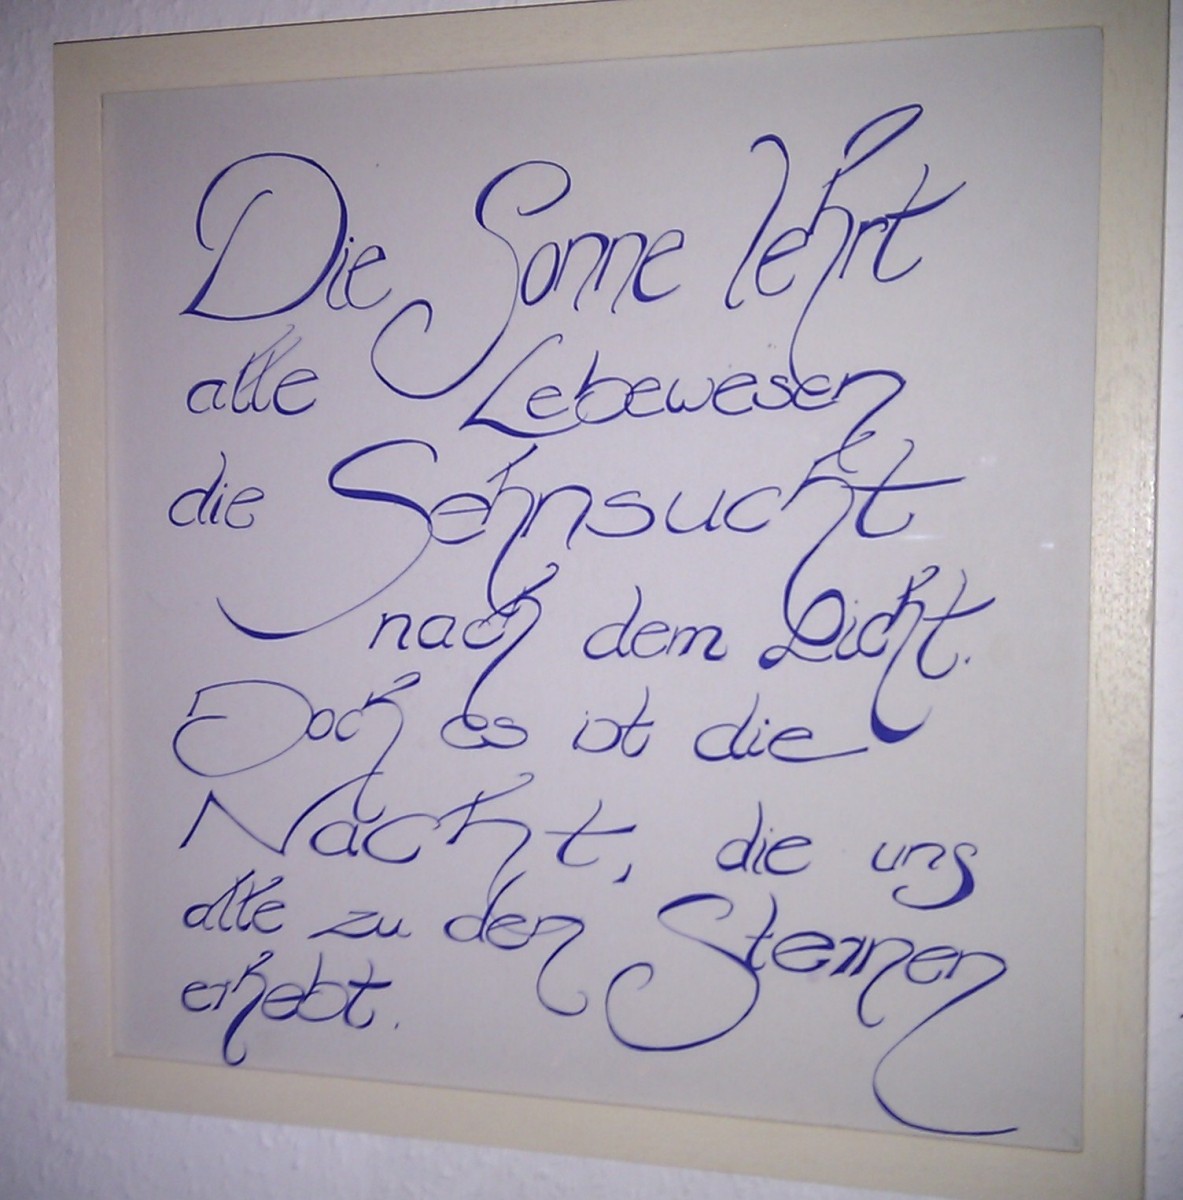 Die Sonne lehrt
alle Lebewesen
die Sehnsucht
nach dem Licht.
Doch es ist die
Nacht, die uns
alle zu den Sternen
erhebt.